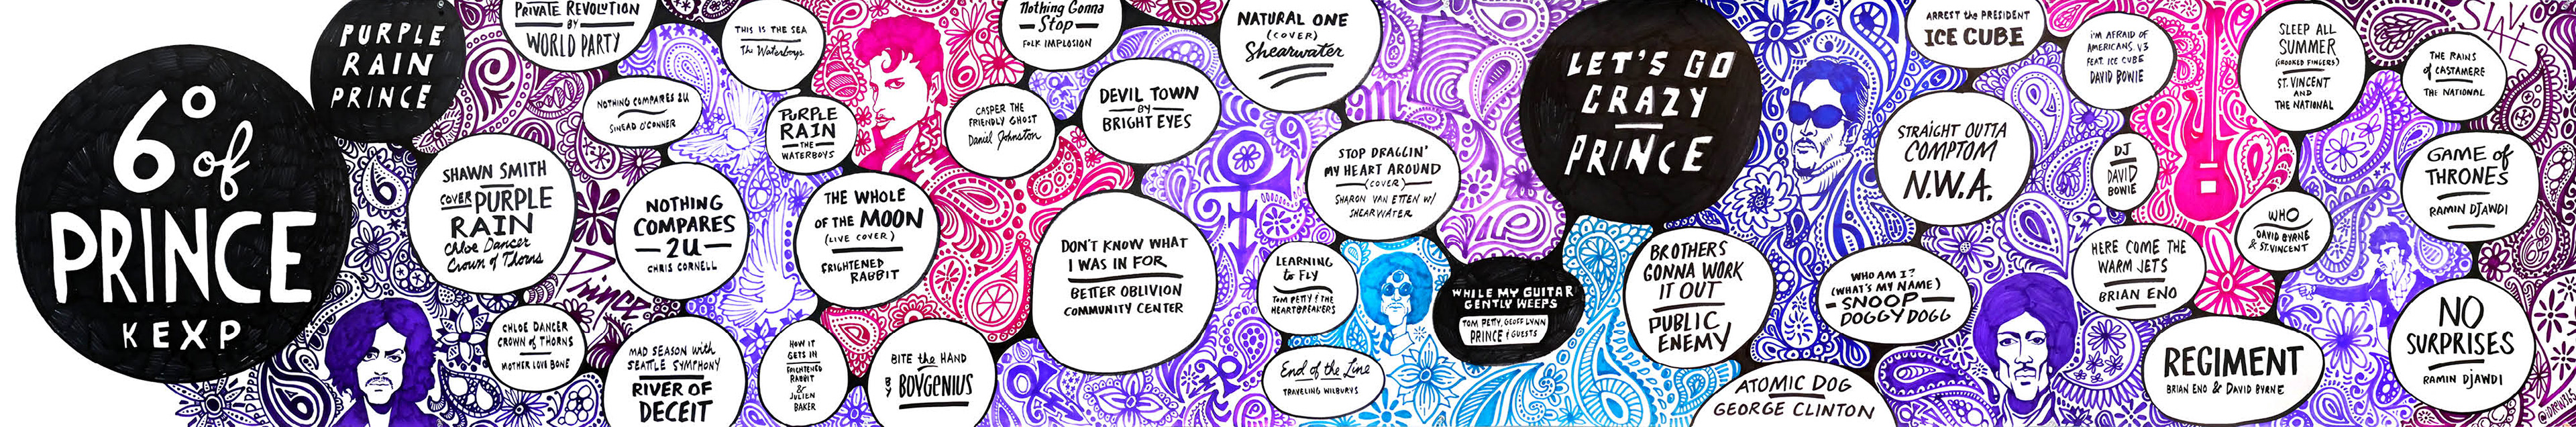 6° of
PRINCE
KEXP
PURPLE
RAIN
PRINCE
PRIVATE REVOLUTION
BY
WORLD PARTY
SHAWN SMITH
COVER PURPLE
RAIN
Chloe Dancer
Crown of Thorns
Prince
CHLOE DANCER
CROWN of THORNS
MOTHER LOVE BONE
NOTHING COMPARES 2U
SINEAD O'CONNER
NOTHING
COMPARES
2U
CHRIS CORNELL
MAD SEASON with
SEATTLE SYMPHONY
RIVER OF
DECEIT
THIS IS THE SEA
The Waterboys
PURPLE
RAIN
THE
WATERBOYS
THE WHOLE
OF THE MOON
(LIVE COVER)
FRIGHTENED
RABBIT
HOW IT
GETS IN
FRIGHTENED
RABBIT
&
JULIEN
BAKER
BITE the HAND
BY BOYGENIUS
Nothing Gonna
Stop
FOLK IMPLOSION
CASPER THE
FRIENDLY GHOST
Daniel Johnston
DEVIL TOWN
BY
BRIGHT EYES
DON'T KNOW WHAT
I WAS IN FOR
BETTER OBLIVION
COMMUNITY CENTER
NATURAL ONE
(COVER)
Shearwater
STOP DRAGGIN'
MY HEART AROUND
(COVER)
SHARON VAN ETTEN W/
SHEARWATER
LEARNING
to FLY
TOM PETTY & THE
HEARTBREAKERS
End of the Line
TRAVELING WILBURYS
WHILE MY GUITAR
GENTLY WEEPS
TOM PETTY, GEOFF LYNN
PRINCE & GUESTS
LET'S GO
CRAZY
PRINCE
BROTHERS
GONNA WORK
IT OUT
PUBLIC
ENEMY
ATOMIC DOG
GEORGE CLINTON
WHO AM I?
(WHAT'S MY NAME)
SNOOP
DOGGY DOGG
STRAIGHT OUTTA
COMPTOM
N.W.A.
ARREST the PRESIDENT
ICE CUBE
I'M AFRAID OF
AMERICANS V3
FEAT. ICE CUBE
DAVID BOWIE
DJ
DAVID
BOWIE
HERE COME THE
WARM JETS
BRIAN ENO
REGIMENT
BRIAN ENO & DAVID BYRNE
WHO
DAVID BYRNE
& ST. VINCENT
SLEEP ALL
SUMMER
(CROOKED FINGERS)
ST. VINCENT
AND
THE NATIONAL
SLAVE
THE RAINS
of CASTAMERE
THE NATIONAL
GAME of
THRONES
RAMIN DJAWDI
NO
SURPRISES
RAMIN DJAWDI